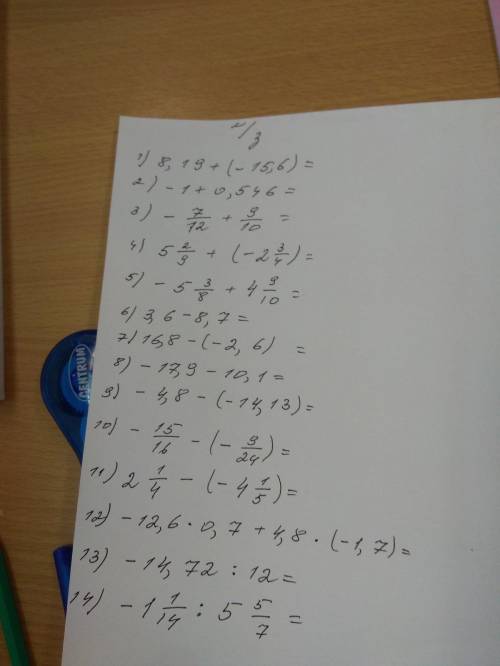 1) 8,19 + (-15,6) =
2) -1 + 0,546 =
3) - 7/12 + 9/10 =
4) 5 2/9 + (-2 3/4) =
5) - 5 3/8 + 4 9/10 =
6) 3,6 - 8,7 =
7) 16,8 - (-2,6) =
8) -17,9 - 10,1 =
9) - 4,8 - (-14,13) =
10) - 15/16 - (- 9/24) =
11) 2 1/4 - (-4 1/5) =
12) -12,6 · 0,7 + 4,8 · (-1,7) =
13) -14,72 : 12 =
14) -1 1/14 : 5 5/7 =
CENTRUM